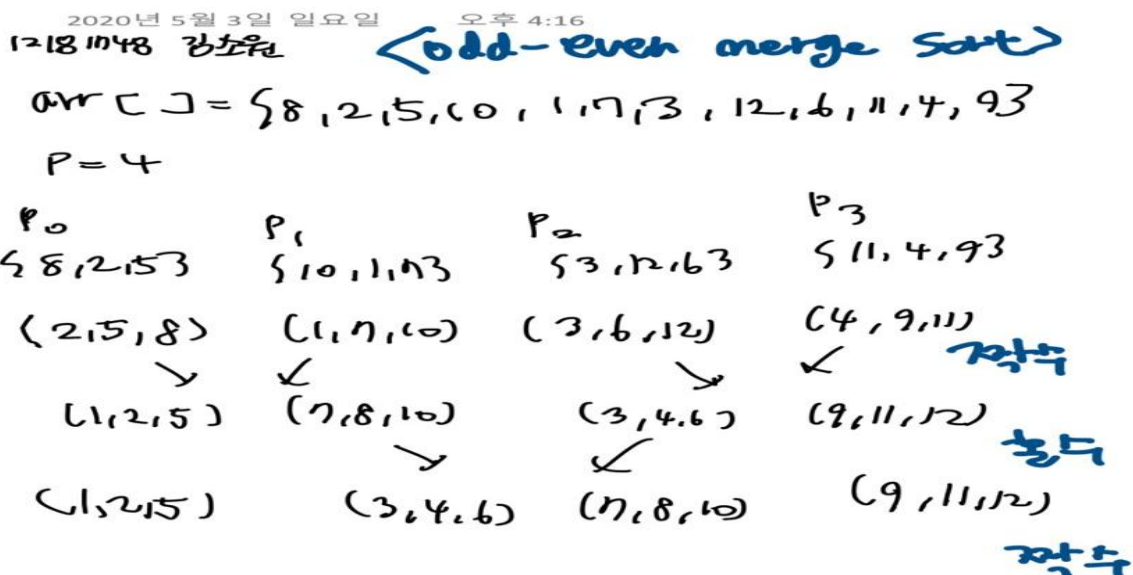 2020년 5월 3일 일요일 오후 4:16
12181748 김소원 <odd-even merge sort>
arr[]={8,2,5,10,1,7,3,12,6,11,4,9}
P=4
P0 P1 P2 P3
{8,2,5} {10,1,7} {3,12,6} {11,4,9}
(2,5,8) (1,7,10) (3,6,12) (4,9,11)
짝수
↘ ↙ ↘ ↙
(1,2,5) (7,8,10) (3,4,6) (9,11,12)
홀수
↘ ↙
(1,2,5) (3,4,6) (7,8,10) (9,11,12)
짝수